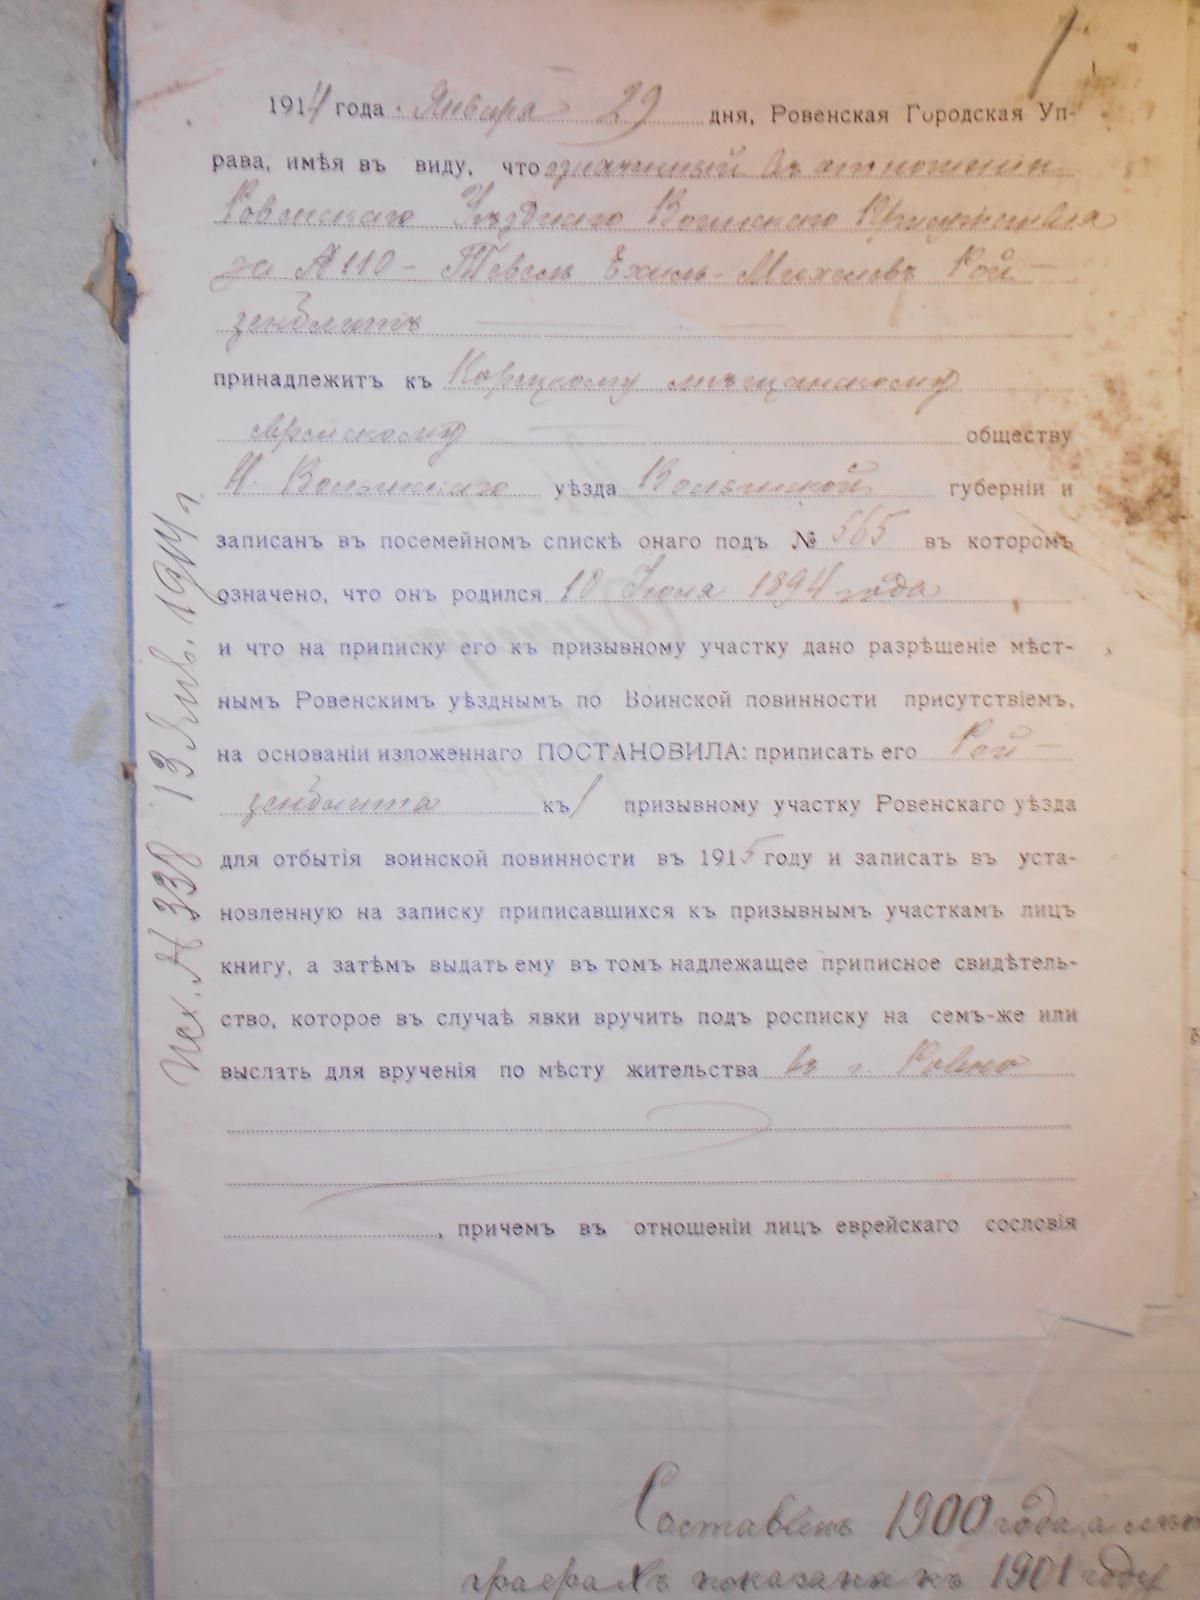 1
1914 года Января 29 дня, Ровенская Городская Уп-
рава, имѣя въ виду, что означенный въ отношеніи
Ровенскаго Уѣзднаго Воинскаго Присутствія
за № 110 - Тевель Ехиль-Михелевъ Рой-
зенблитъ
принадлежитъ къ Корецкому мѣщанскому
еврейскому обществу
Н. Волынскаго уѣзда Волынской губерніи и
записанъ въ посемейномъ спискѣ онаго подъ № 565 въ которомъ
означено, что онъ родился 10 Іюля 1894 года
и что на приписку его къ призывному участку дано разрѣшеніе мѣст-
нымъ Ровенскимъ уѣзднымъ по Воинской повинности присутствіемъ,
на основаніи изложеннаго ПОСТАНОВИЛА: приписать его Рой-
зенблита къ 1 призывному участку Ровенскаго уѣзда
для отбытія воинской повинности въ 1915 году и записать въ уста-
новленную на записку приписавшихся къ призывнымъ участкамъ лицъ
книгу, а затѣмъ выдать ему въ томъ надлежащее приписное свидѣтель-
ство, которое въ случаѣ явки вручить подъ росписку на семъ-же или
выслать для врученія по мѣсту жительства въ г. Ровно
, причемъ въ отношеніи лицъ еврейскаго сословія
Исх. № 338 13 Янв. 1914 г.
Составленъ 1900 года, а
графахъ показана къ 1901 году